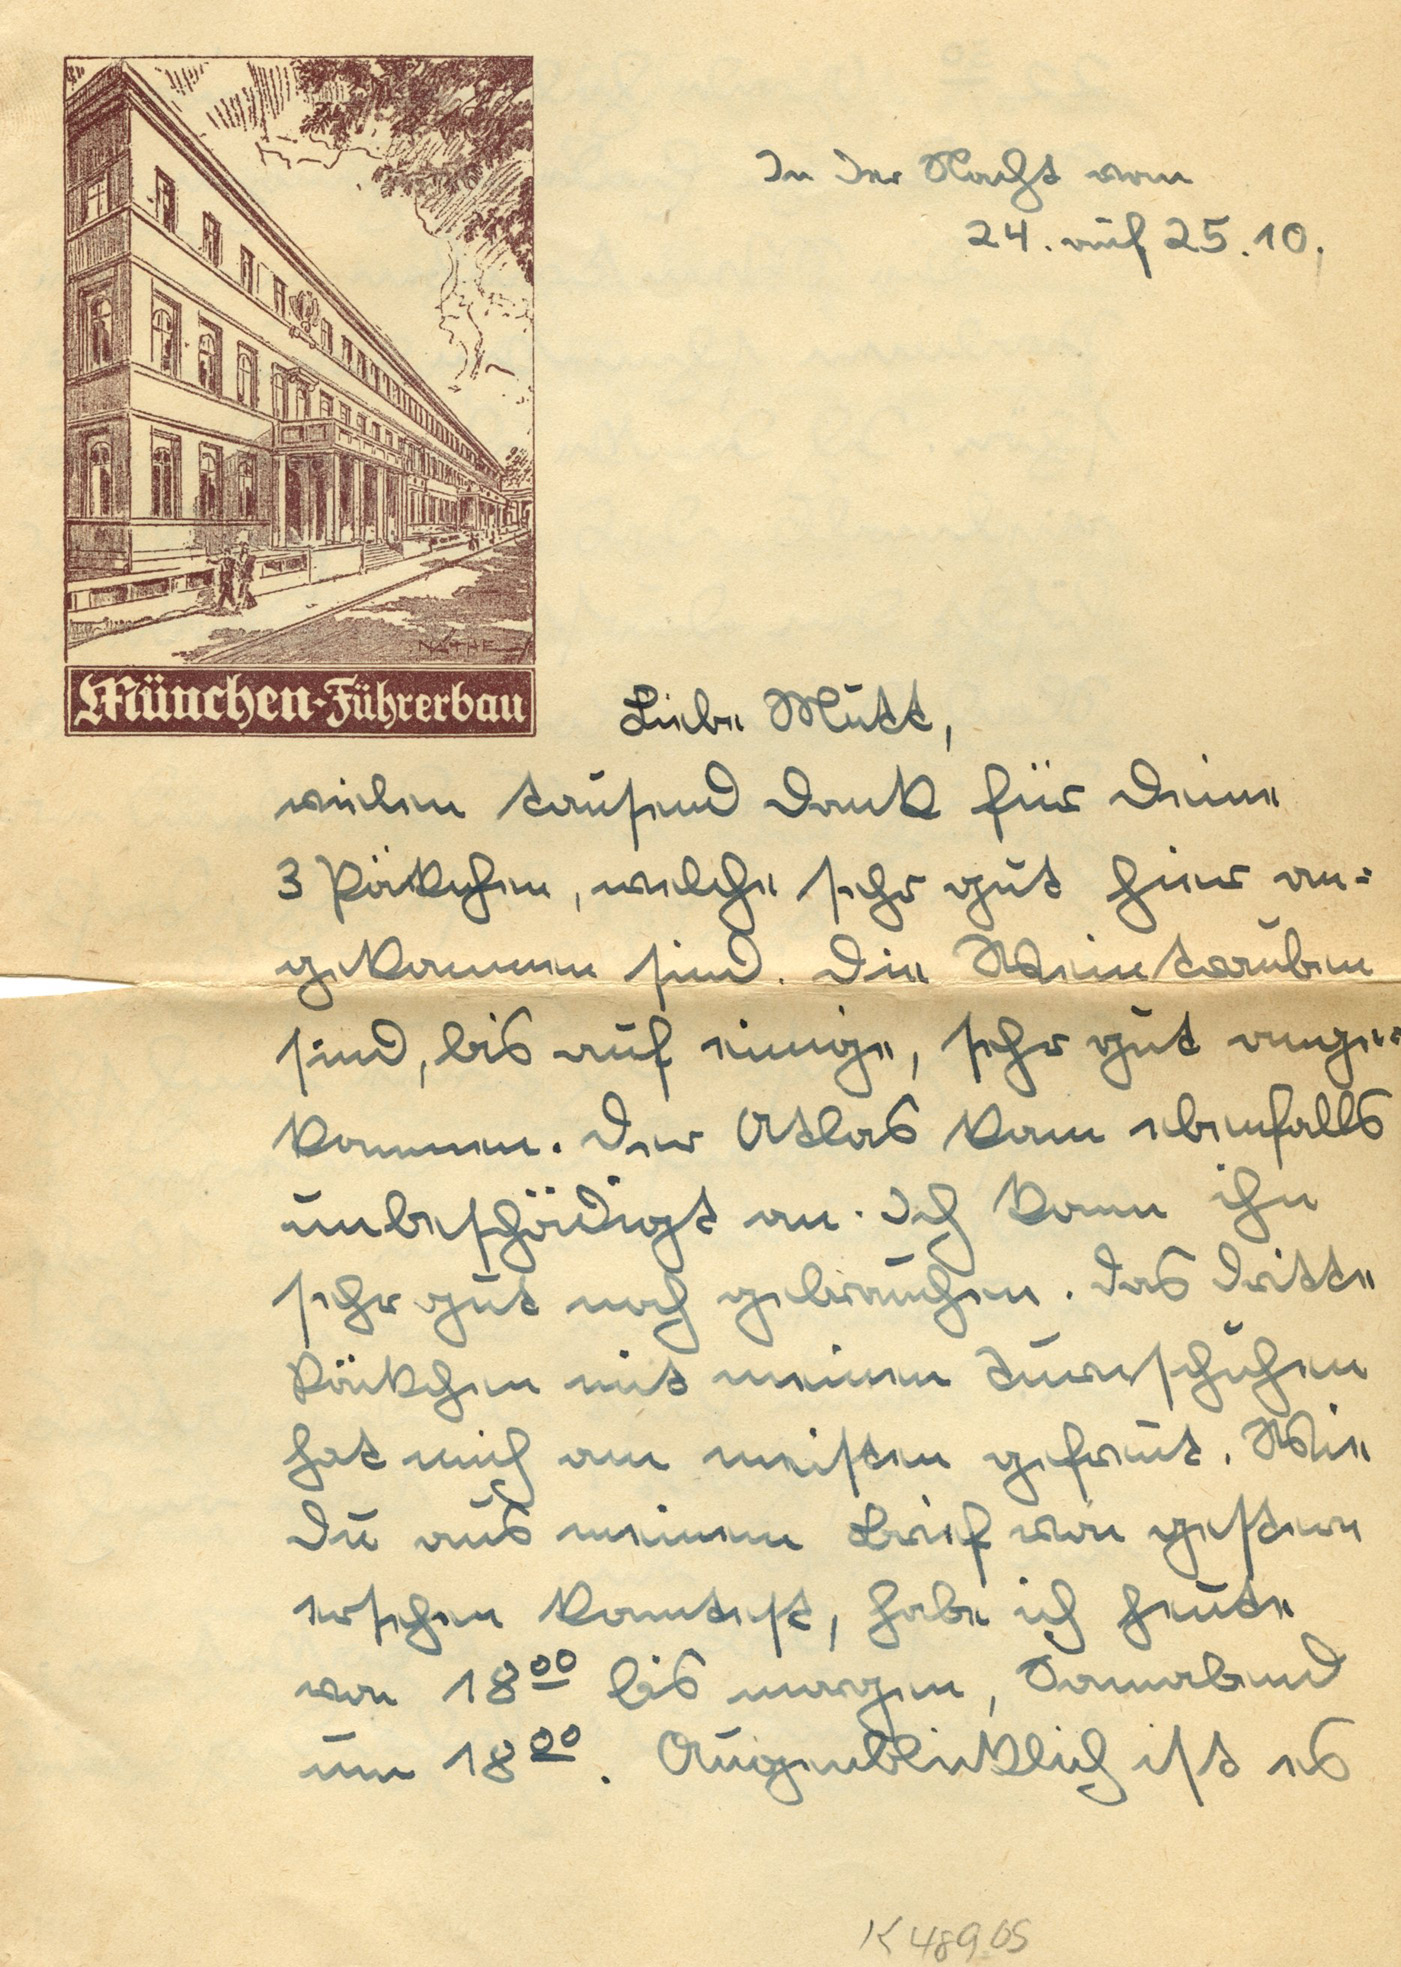 In der Nacht vom
24. auf 25.10.
NÖTHE
München-Führerbau
Liebe Mutt,
vielen tausend Dank für Deine
3 Päckchen, welche sehr gut hier an=
gekommen sind. Die Weintrauben
sind, bis auf einige, sehr gut ange=
kommen. Der Atlas kam ebenfalls
unbeschädigt an. Ich kann ihn
sehr gut noch gebrauchen. Das dritte
Päckchen mit meinen Turnschuhen
hat mich am meisten gefreut. Wie
Du aus meinem Brief von gestern
ersehen kanntest, habe ich heute
von 18⁰⁰ bis morgen, Sonnabend
um 18⁰⁰. Augenblicklich ist es
K 489 05